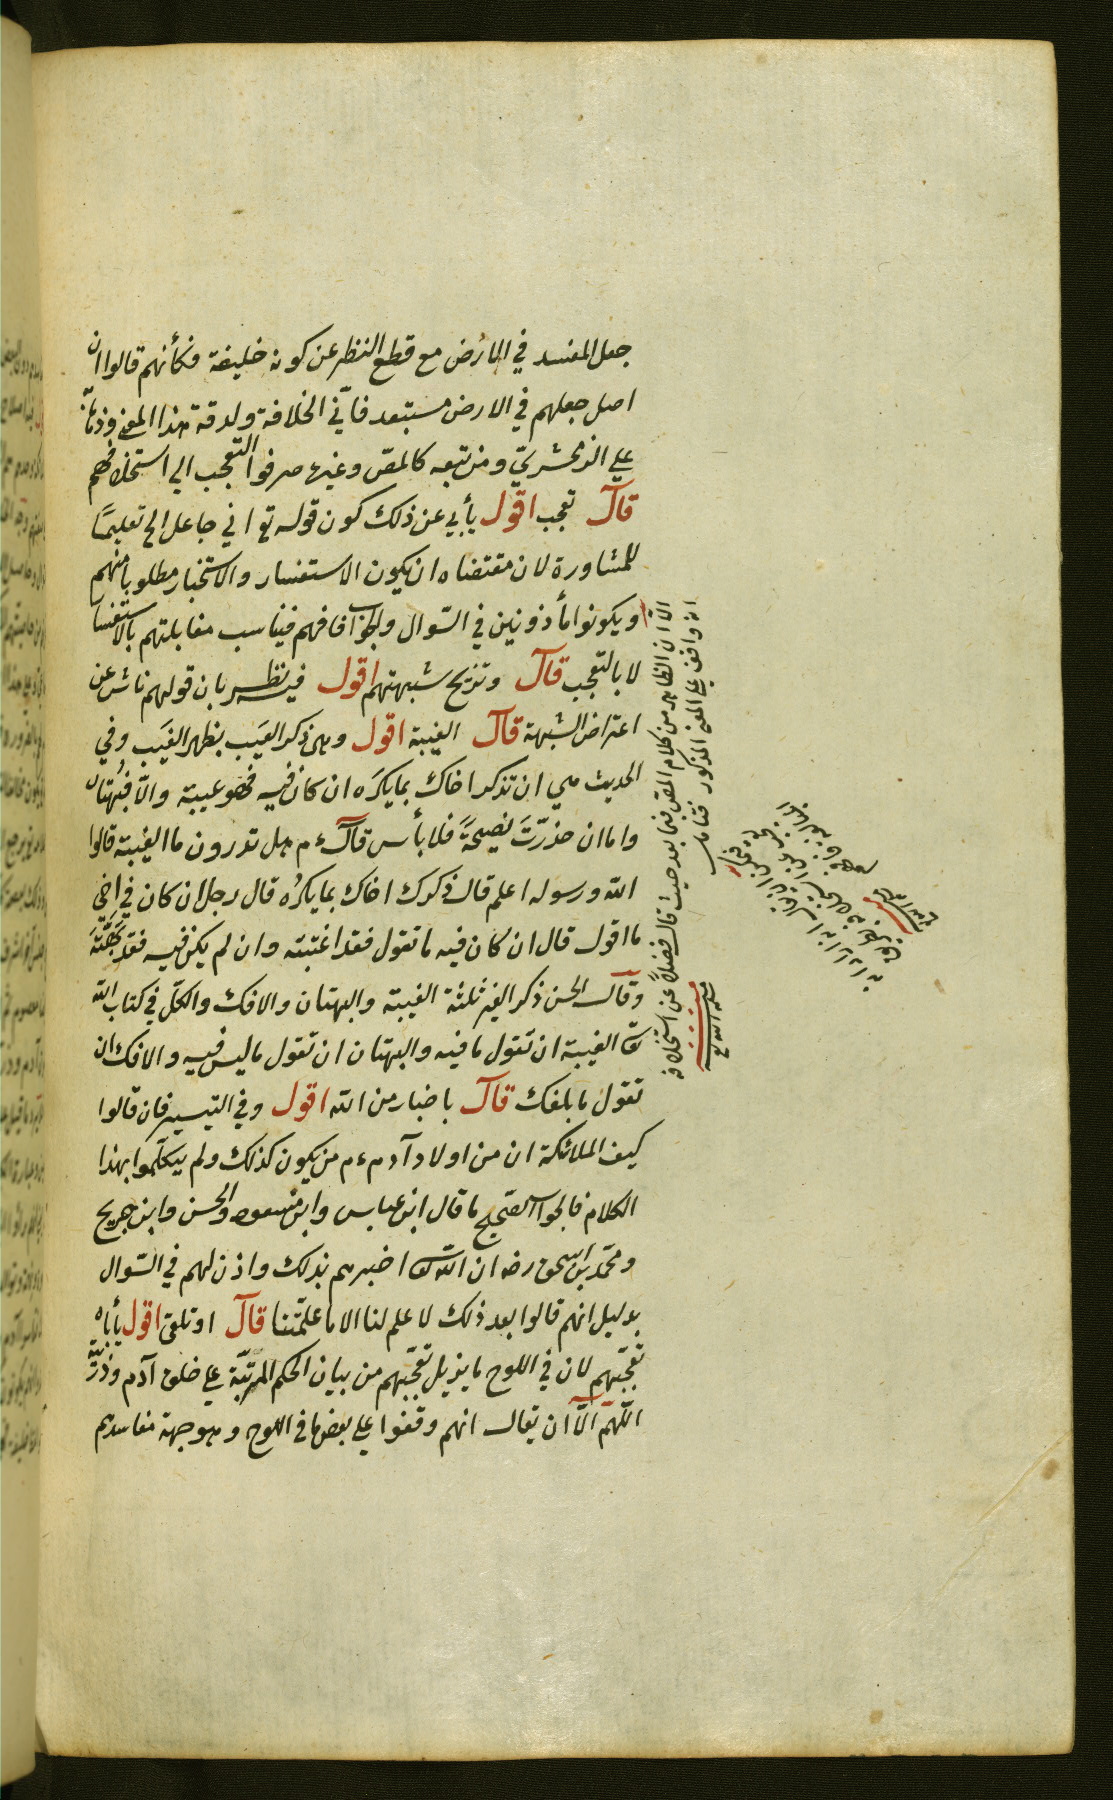 جعل المفسد في الارض مع قطع النظر عن كونه خليفة فكأنهم قالوا ان
اصل جعلهم في الارض مستبعد فأنّي الخلافة ولدقة هذا المعنى وذا
علي الزمخشريّ ومن تبعه كالمص وغيره صرفوا التعجب الي استخلافهم
قال تعجب اقول يأبي عن ذلك كون قوله تع اني جاعل الخ تعليمًا
للمشاورة لان مقتضاه ان يكون الاستفسار والاستخبار مطلوبا منهم
ويكونوا مأذونين في السّوال والجواب فافهم فيناسب مقابلتهم بالاستفسا
لا بالتعجب قال وتزيح شبهتهم اقول فيه نظر بان قولهم ناش عن
اعتراض الشبهة قال الغيبة اقول وهي ذكر العَيب بظهر الغَيب وفي
الحديث هي ان تذكر اخاك بما يكرَه ان كان فيه فهو غيبة والّا فبُهتان
واما ان حذرّتَ نصيحةً فلا بأس قال ءم هل تدرون ما الغيبة قالوا
اللّه ورسوله اعلم قال ذكرك اخاك بما يكرُه قال رجل ان كان في اخي
ما اقول قال ان كان فيه ما تقول فقد اغتبته وان لم يكن فيه فقد بَهَتَّهَ
وقال الحسن ذكر الغير ثلثة الغيبة والبهتان والافك والكلّ في كتاب اللّه
تعَ الغيبة ان تقول ما فيه والبهتان ان تقول ما ليس فيه والافك ان
تقول ما بلغك قال باخبار من اللّه اقول وفي التيسير فان قالوا
كيف الملائكة ان من اولاد آدم ءم من يكون كذلك ولم يتكلّموا بهذا
الكلام فالجواب الصّحيح ما قال ابن عباس وابن مسعود والحسن وابن جريج
ومحمّد بن اسحق رضه ان اللّه تع اخبرهم بذلك واذن لهم في السّوال
بدليل انهم قالوا بعد ذلك لا علم لنا الا ما علّمتنا قال او تلقٍ اقول يأباه
تعجّبهم لان في اللوح ما يزيل تعجّبهم من بيان الحكم المرتبّة علي خلق آدم وذرّيّته
اللّهمّ الّا ان يقال انهم وقفوا علي بعض ما في اللوح وهو جهة مفاسدهم
الا ان الظاهر من كلام المص فيما بعد حيث قال فضلاً عن استخلافه
انه واقف علي المعنى المذكور فتأمل